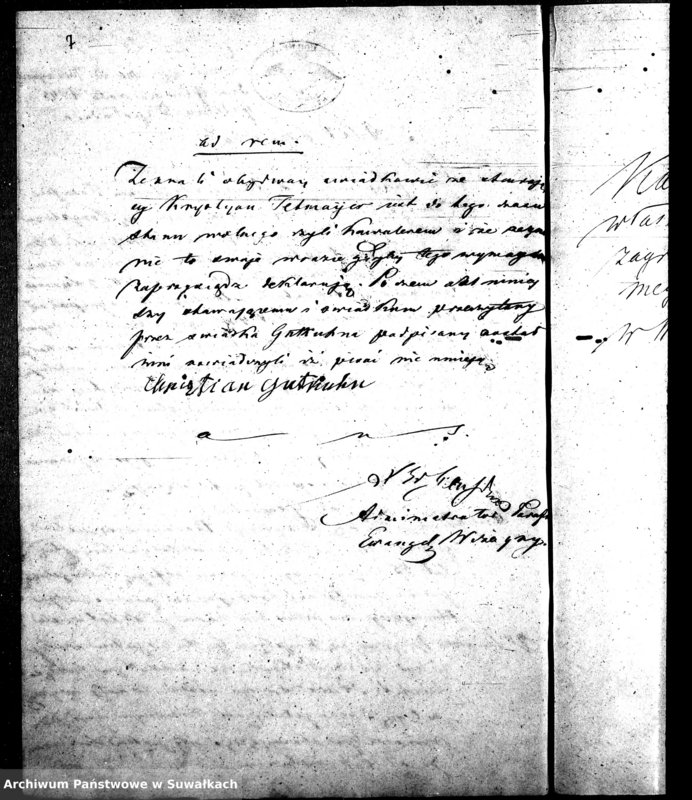 7
ad rem.
Zeznali obydway swiadkowie że stawaią
cy Krystyan Tetmajer jest do tego czasu
stanu wolnego czyli kawalerem i że zezna
nie to swoje w razie gdyby tego wymagano
zaprzysiądz deklarują. Po czem akt niniey
szy stawaiącemu i swiadkom przeczytany
przez swiadka Gutkuhna podpisany został
inni oswiadczyli iż pisać nie umieją.
Christian Gutkuhn
a n s.
Administrator Paraf
Ewangel Wiżayny.
właś
zagr
w
Archiwum Państwowe w Suwałkach